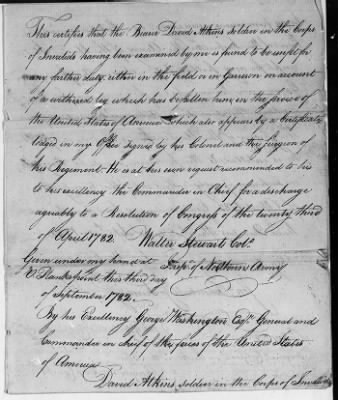 This certifies that the Bearer David Atkins soldier in the Corps
of Invalids having been examined by me is found to be unfit for
any farther duty either in the field or in Garrison on account
of a withered leg which has befallen him in the service of
the United States of America which also appears by a Certificate
lodged in my Office signed by his Colonel and the surgeon of
his Regiment. He is at his own request recommended to his
to his excellency the Commander in Chief for a discharge
agreeably to a Resolution of Congress of the twenty third
of April 1782. Walter Stewart Colo.
Given under my hand at Insp.r of Northern Army
V Planks point this third day
of September 1782.
By his Excellency George Washington Esq.r General and
Commander in chief of the forces of the United States
of America
David Atkins soldier in the Corps of Invalids